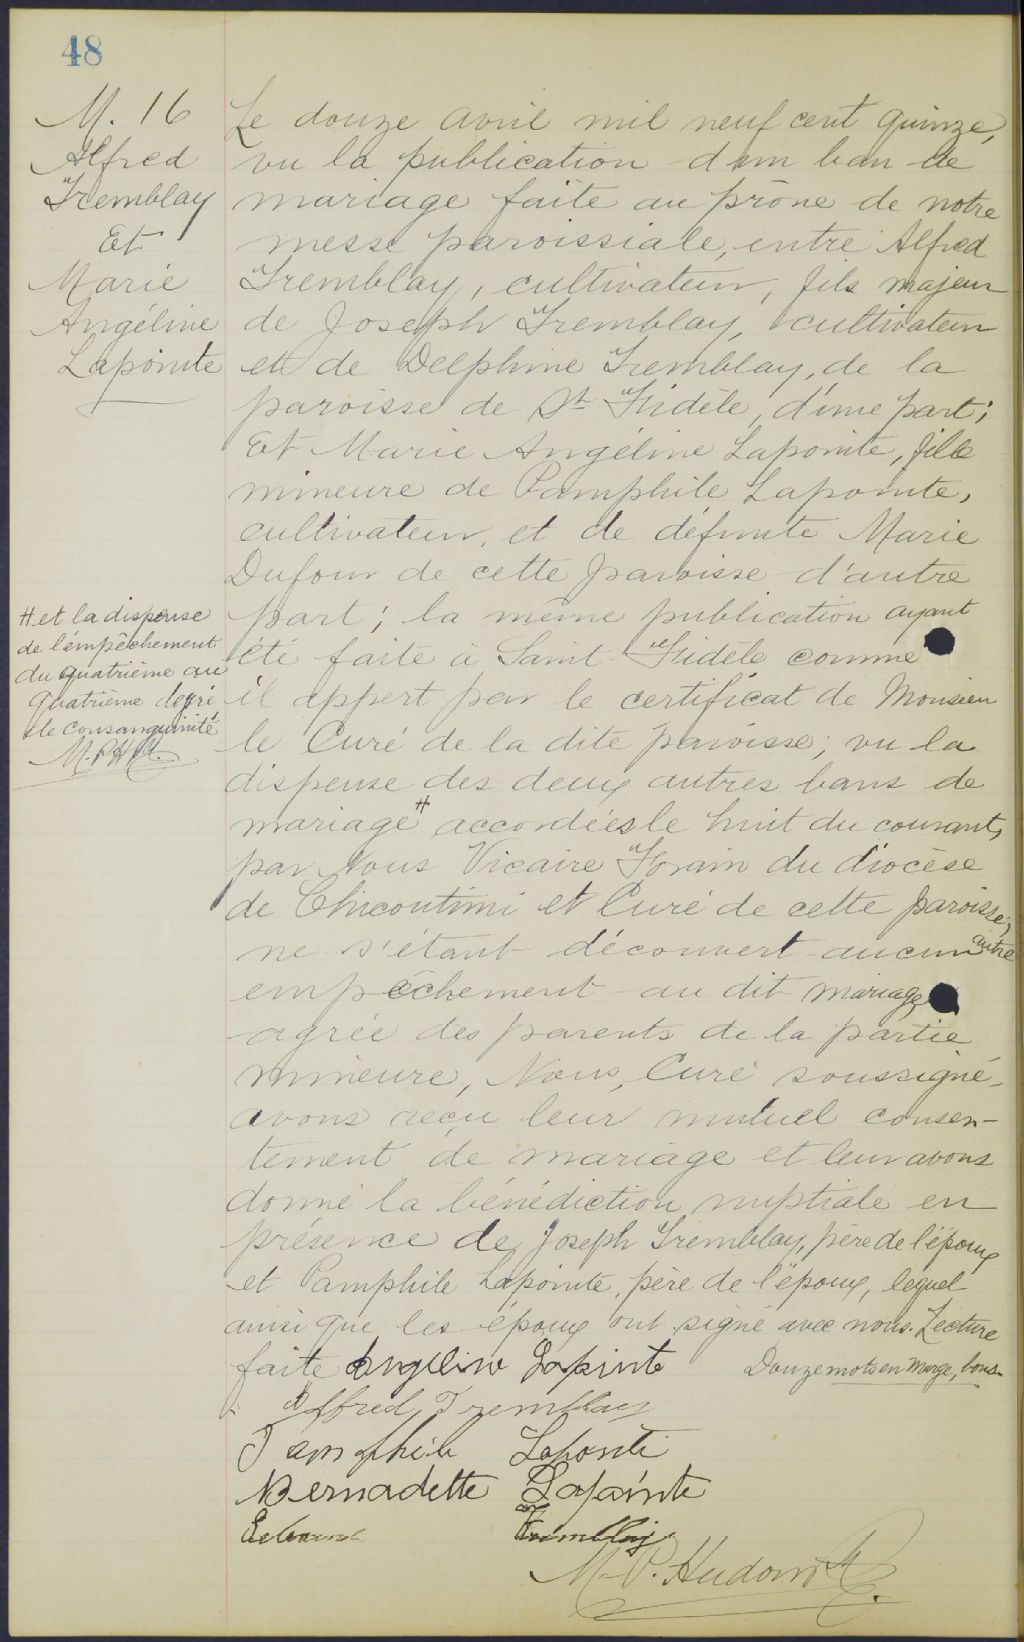 48
M. 16
Alfred
Tremblay
Et
Marie
Angéline
Lapointe
Le douze avril mil neuf cent quinze,
vu la publication d'un ban de
mariage faite au prône de notre
messe paroissiale, entre Alfred
Tremblay, cultivateur, fils majeur
de Joseph Tremblay, cultivateur
et de Delphine Tremblay, de la
paroisse de St Fidèle, d'une part;
Et Marie Angéline Lapointe, fille
mineure de Pamphile Lapointe,
cultivateur, et de défunte Marie
Dufour de cette paroisse d'autre
part; la même publication ayant
été faite à Saint Fidèle comme
il appert par le certificat de Monsieur
le Curé de la dite paroisse; vu la
dispense des deux autres bans de
mariage # accordées le huit du courant,
par Nous Vicaire Forain du diocèse
de Chicoutimi et Curé de cette paroisse;
ne s'étant découvert aucun autre
empêchement au dit mariage
agrée des parents de la partie
mineure, Nous, Curé soussigné,
avons reçu leur mutuel consen-
tement de mariage et leur avons
donné la bénédiction nuptiale en
présence de Joseph Tremblay, père de l'époux
et Pamphile Lapointe, père de l'époux, lequel
ainsi que les époux ont signé avec nous. Lecture
faite
# et la dispense
de l'empêchement
du quatrième au
quatrième degré
de consanguinité
Douze mots en marge, bons.
Angeline Lapinte
Alfred Tremblay
Pamphile Laponte
Bernadette Lapointe
Edward Tremblay
M. P. Hudon